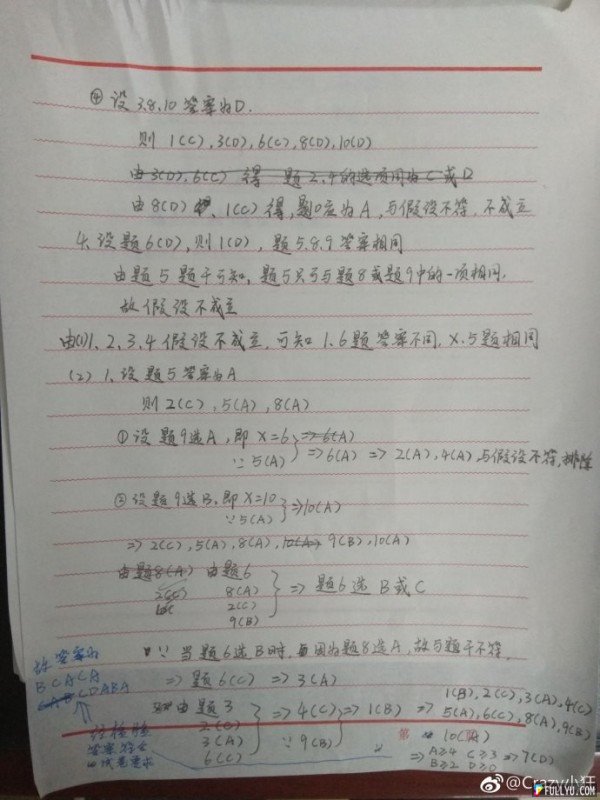 ④ 设 3.8.10 答案为D.
则 1(C), 3(D), 6(C), 8(D), 10(D)
由3(D), 6(C) 得 题2.4的选项同为C或D
由 8(D) 1(C) 得, 题10应为A, 与假设不符, 不成立
4. 设题6(D), 则1(D), 题5.8.9答案相同
由题5题干可知, 题5只可与题8或题9中的一项相同.
故假设不成立
由(1)1、2、3、4假设不成立, 可知1.6题答案不同, X.5题相同
(2) 1. 设题5答案为A
则2(C), 5(A), 8(A)
① 设题9选A, 即 X=6 ⇒6(A)
∵5(A) ⇒6(A) ⇒ 2(A), 4(A), 与假设不符, 排除
② 设题9选B, 即X=10
∵5(A) ⇒10(A)
⇒ 2(C), 5(A), 8(A), 10(A) 9(B), 10(A)
由题8(A) 由题6
2(C) 8(A)
2(C) ⇒ 题6选B或C
9(B)
∵ 当题6选B时, 因为题8选A, 故与题干不符.
⇒ 题6(C) ⇒ 3(A)
由题3
2(C)
3(A)
6(C)
⇒4(C) ⇒1(B) ⇒
∵9(B)
1(B), 2(C), 3(A), 4(C)
5(A), 6(C), 8(A), 9(B)
第
10(A)
⇒ A≥4 C≥3 ⇒7(D)
B≥2 D≥0
故答案为
BCACA
CDABA
经检验
答案符合
试卷要求
@Crazy小狂
FULLYU.COM